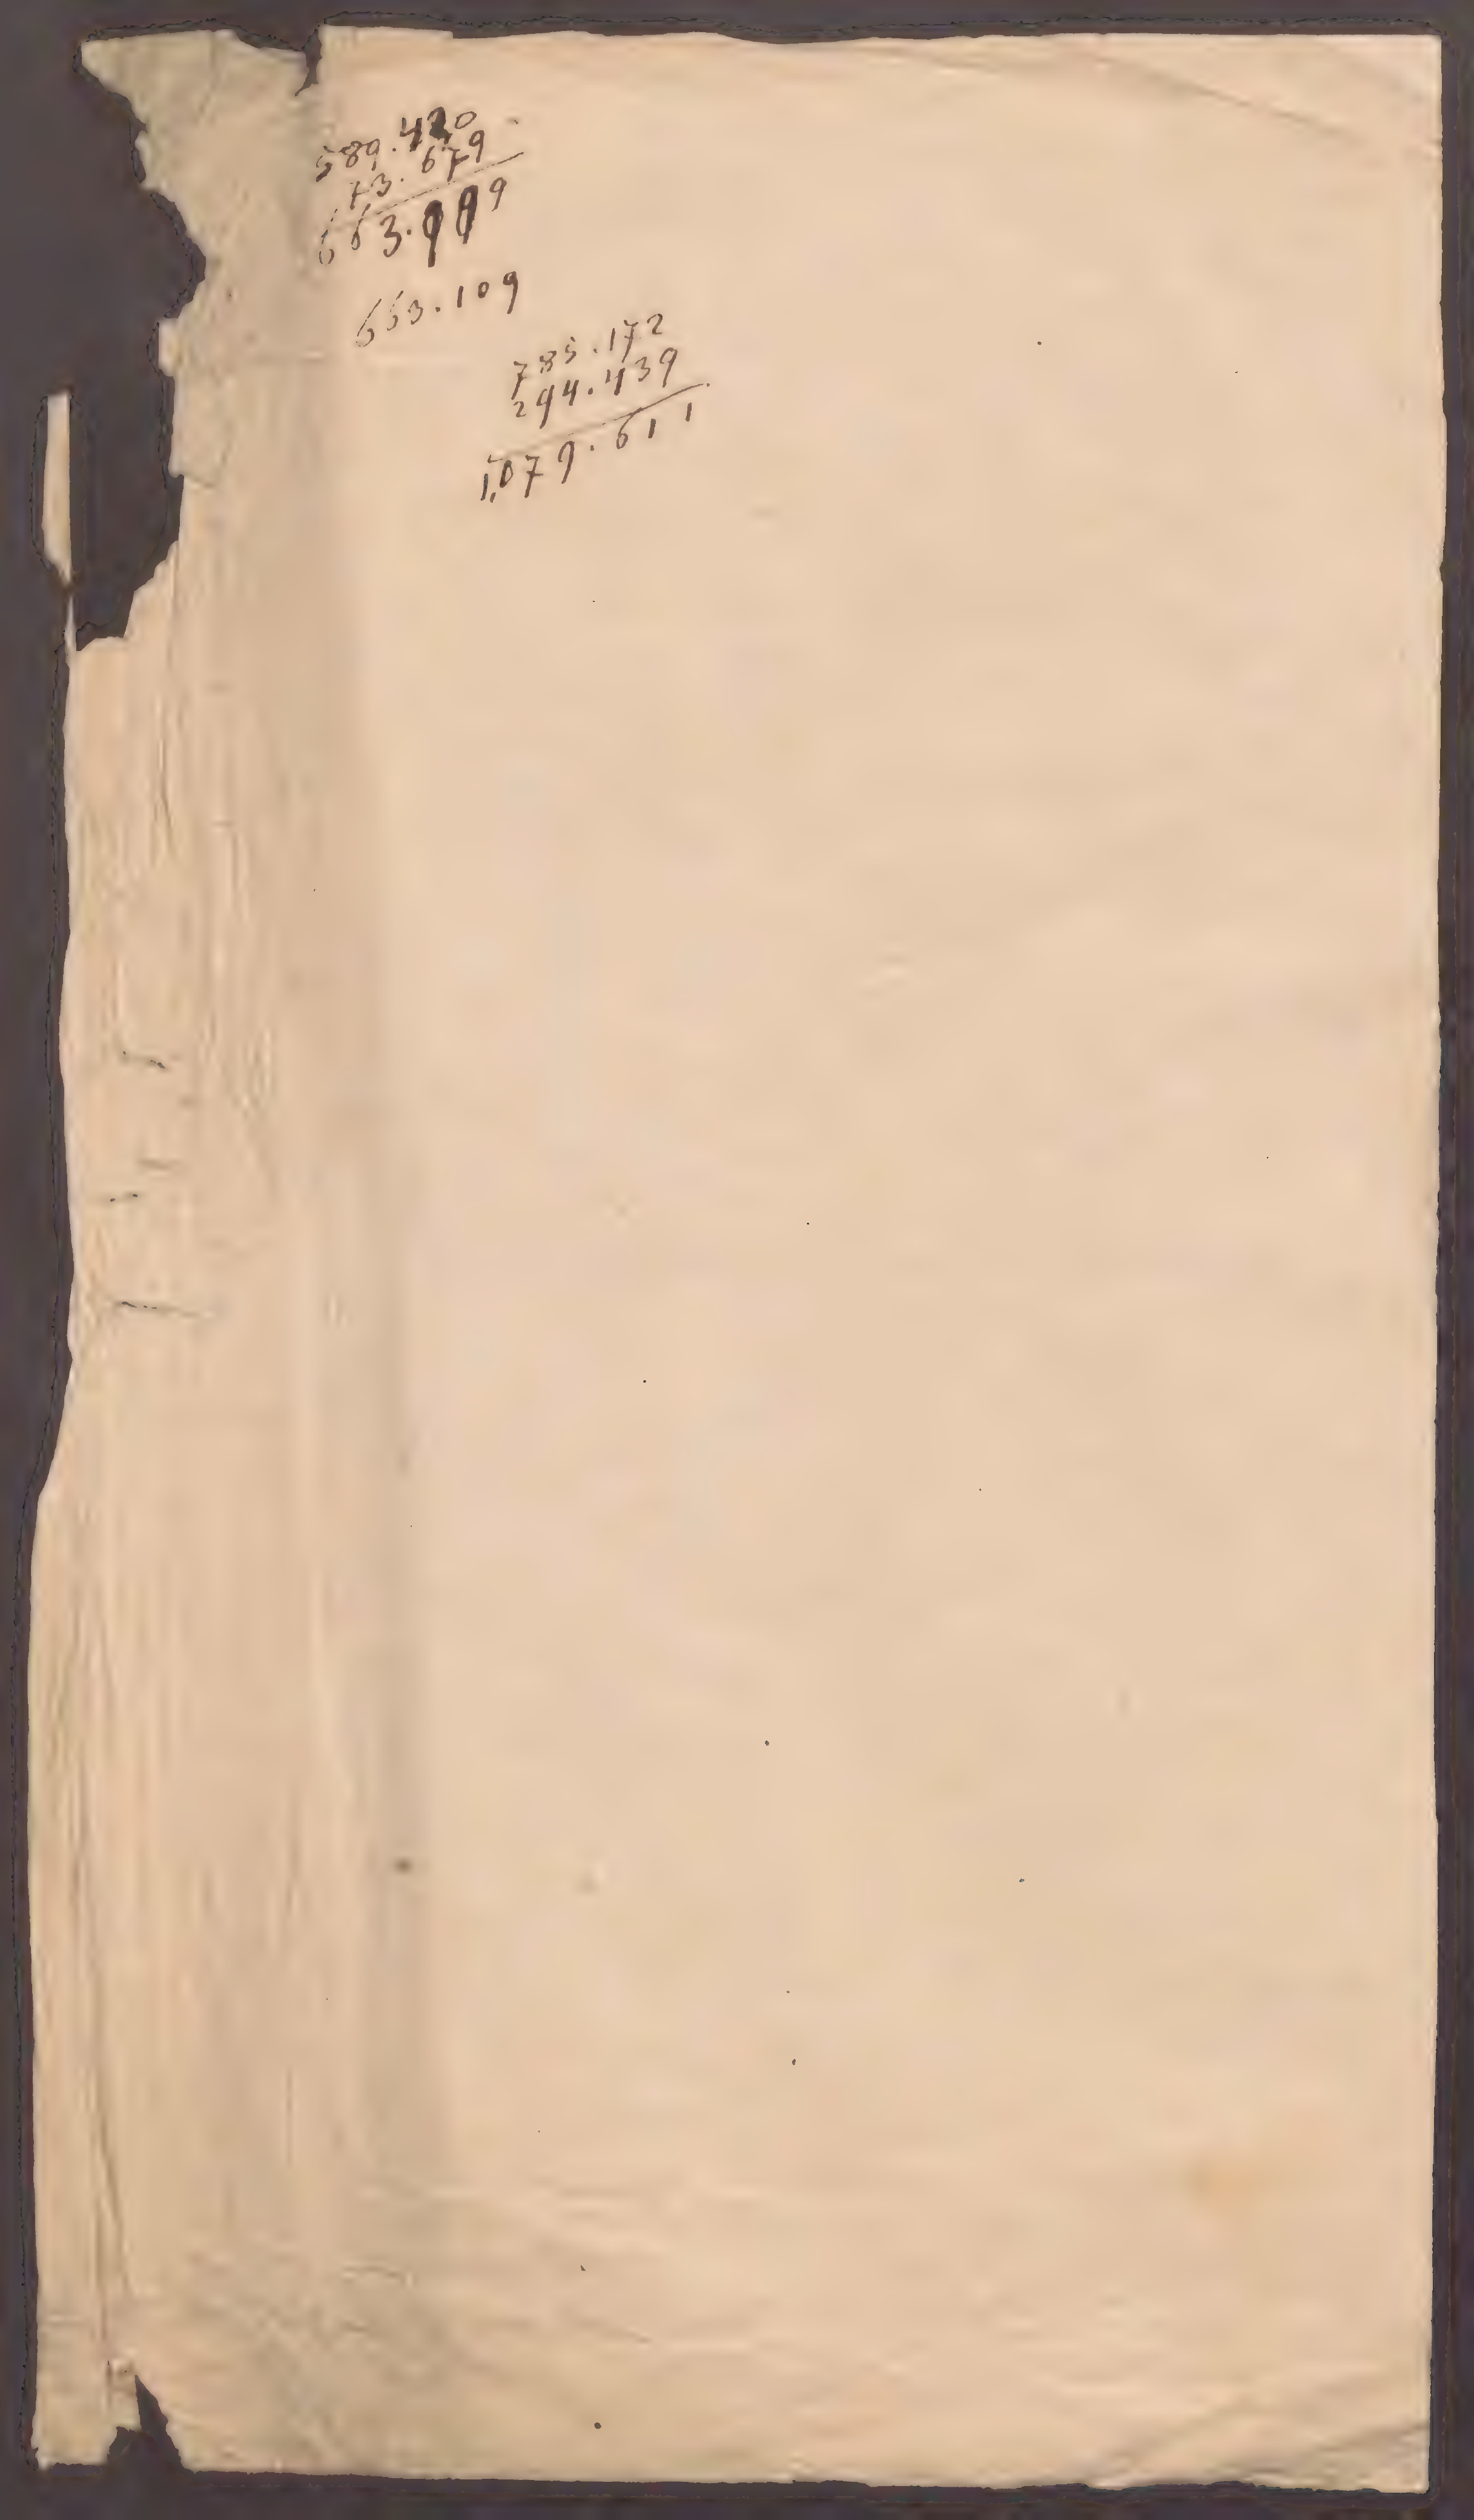 589.430
73.679
663.109
663.109
785.172
294.439
1,079.611